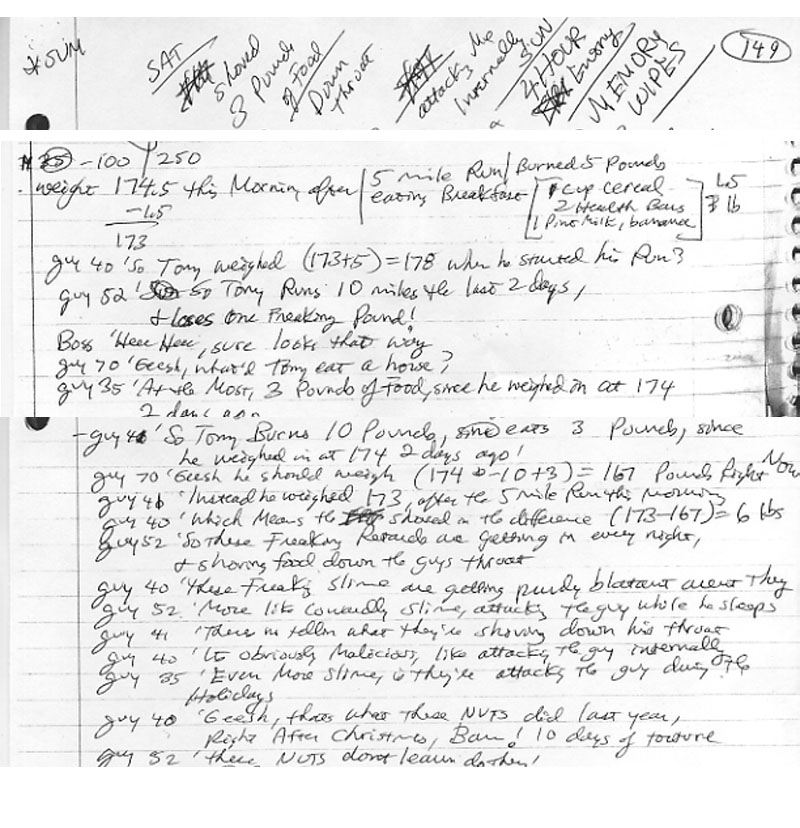 149
SAT
shoved
3 Pounds
of Food
Down
throat
attacks Me
Internally
SUN
4 HOUR
MEMORY
WIPES
-100 250
weight 174.5 this Morning after 5 mile Run/Burned 5 Pounds
eating Breakfast 1 cup cereal
2 Health Bars
1 Pint Milk, banana
1.5
lb
-1.5
173
guy 40 'So Tony weighed (173+5) = 178 when he started his Run?
guy 52 'So Tony Runs 10 miles the last 2 days,
& loses One Freaking Pound!
Boss 'Hee Hee, sure looks that way
guy 70 'Geesh, what'd Tony eat a horse?
guy 35 'At the Most, 3 Pounds of Food, since he weighed in at 174
2 days ago
-guy 'So Tony Burns 10 Pounds, eats 3 Pounds, since
he weighed in at 174 2 days ago!
guy 70 'Geesh he should weigh (174 -10+3) = 167 Pounds Right Now
guy 'Instead he weighed 173, after the 5 mile Run this morning
guy 40 'which Means the shoved in the difference (173-167) = 6 lbs
guy 52 'So these Freaking Retards are getting in every night,
& shoving food down the guys throat
guy 40 'these Freakg slime are getting purdy blatant arent They
guy 52 'More like Cowardly slime, attackg the guy while he sleeps
guy 41 'There no tellin what they're shoving down his throat
guy 40 'Its obviously Malicious, like attackg the guy internally
guy 35 'Even More slime, is they're attackg the guy during the
Holidays
guy 40 'Geesh, thats what these NUTS did last year,
Right After Christmas, Bam! 10 days of torture
guy 52 'these NUTS dont learn do they!